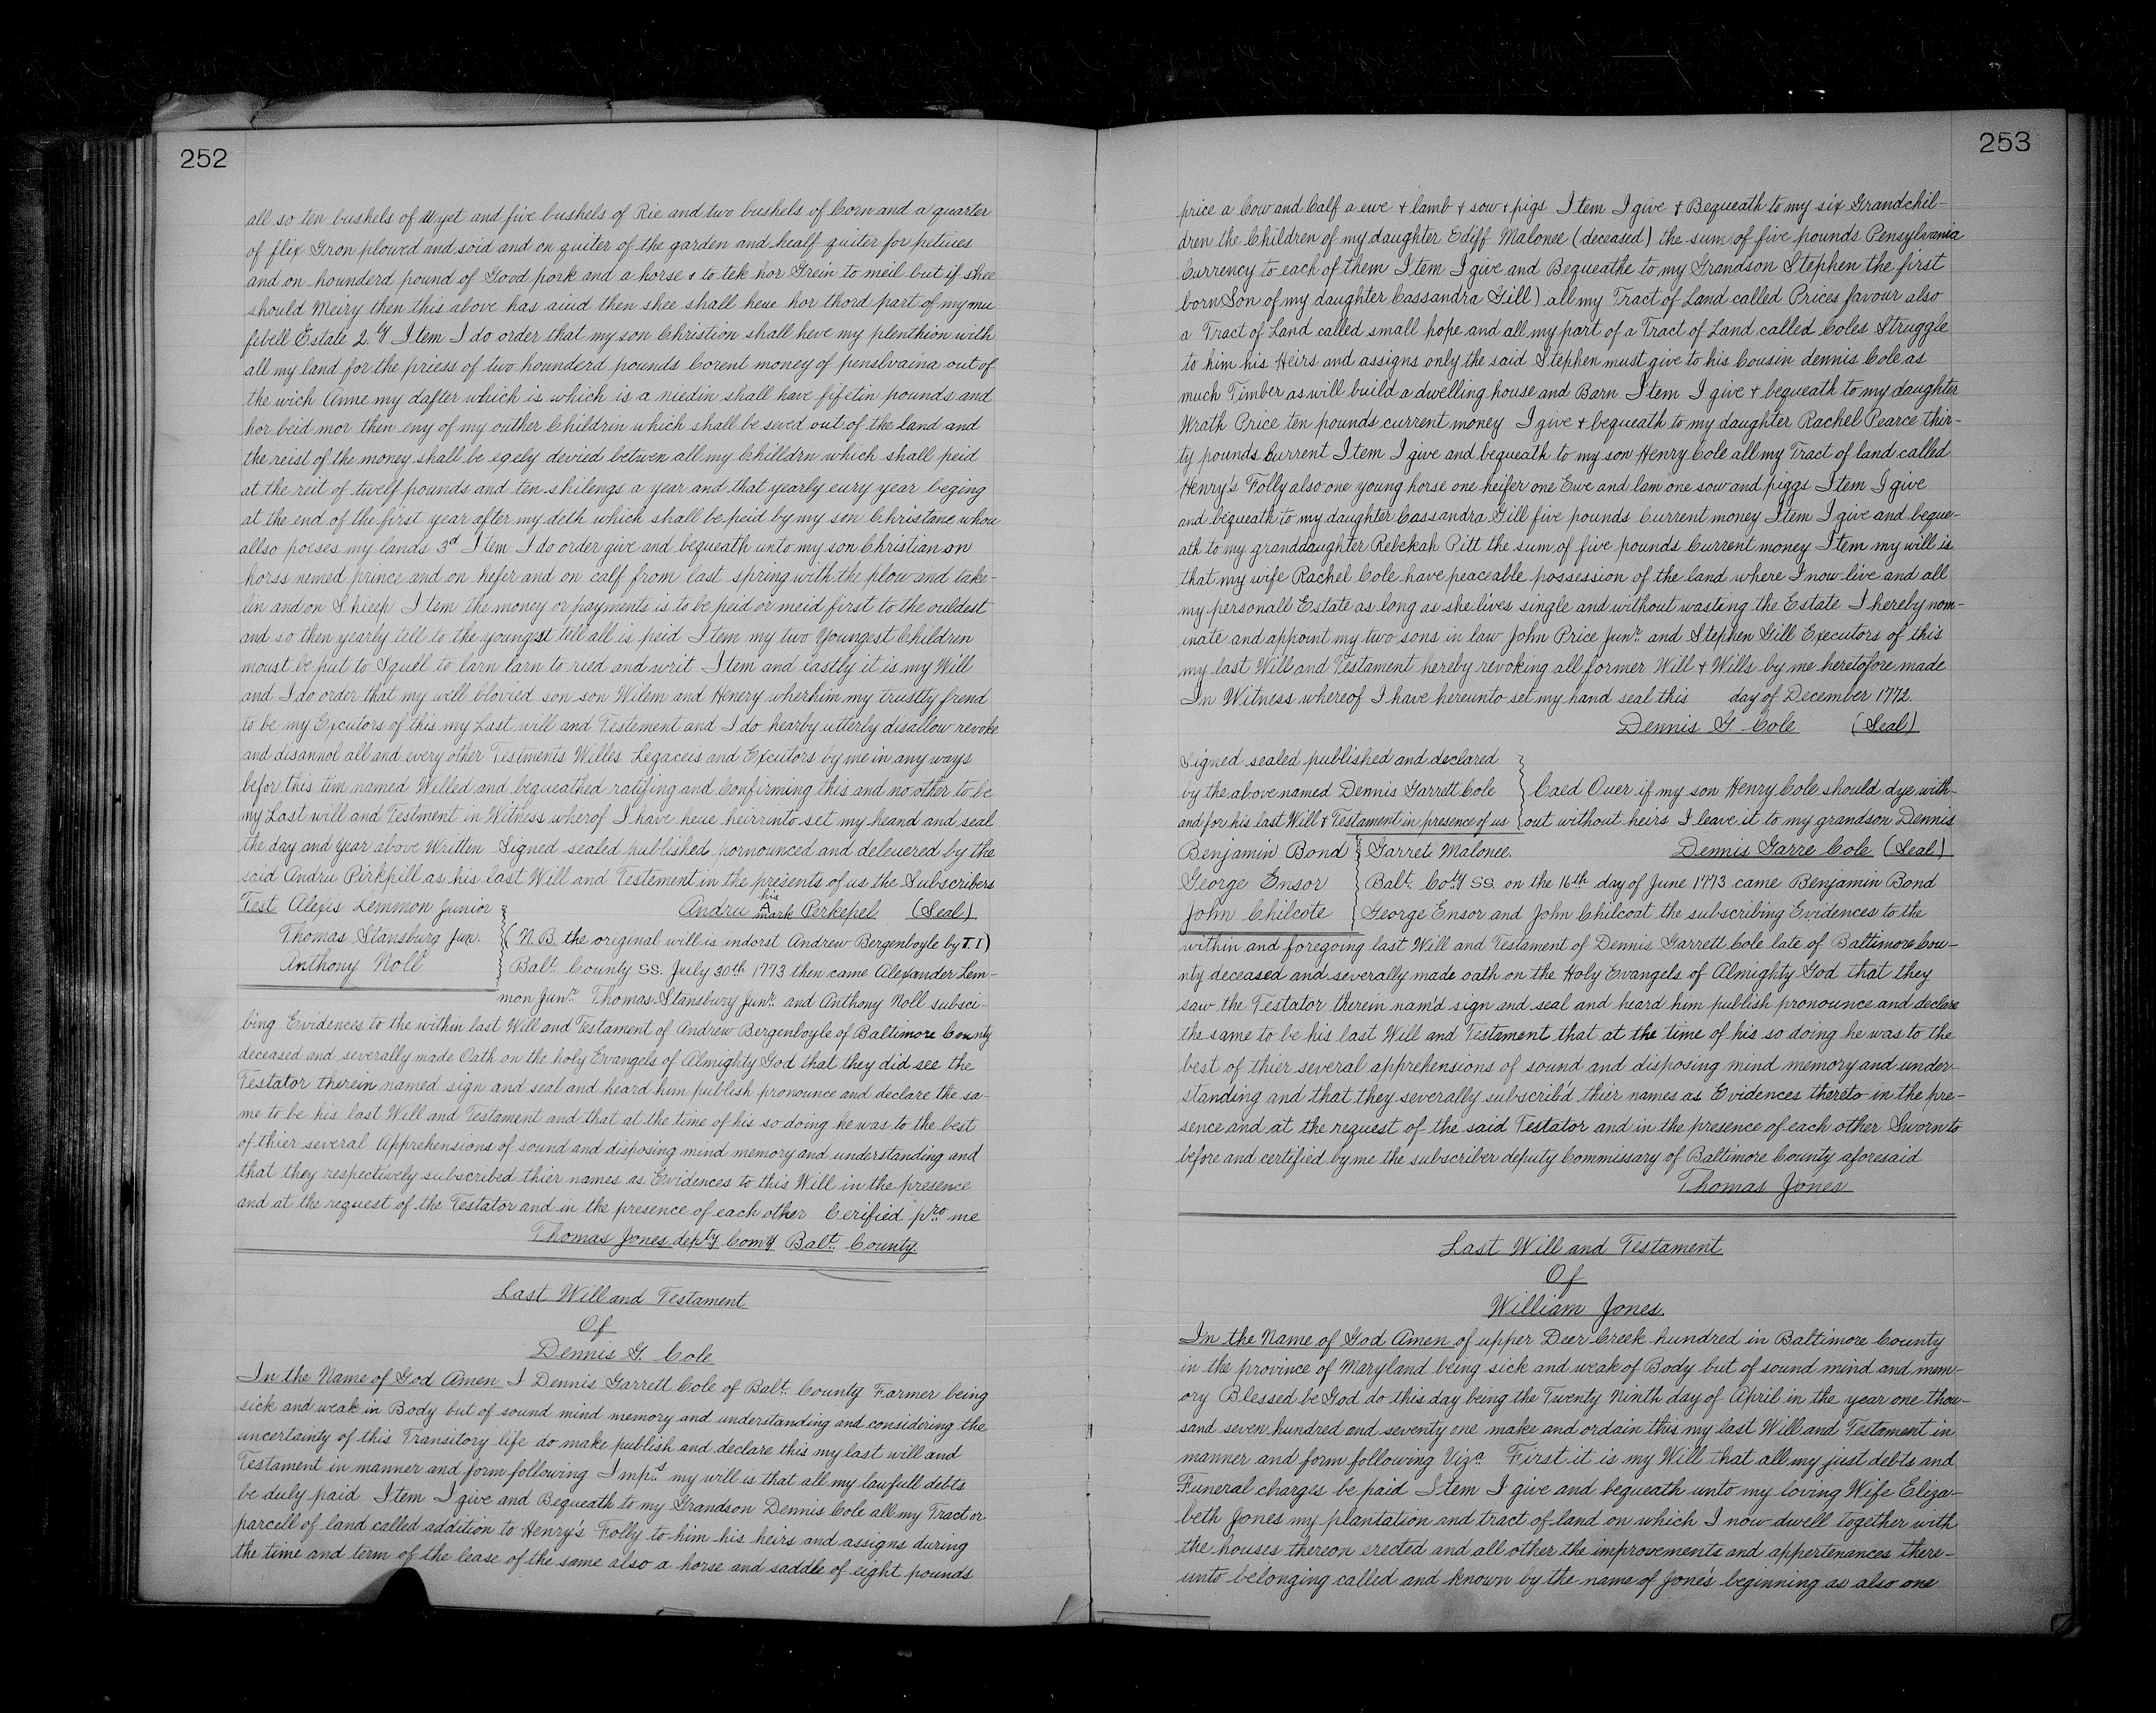 252
all so ten bushels of Wyet and five bushels of Rie and two bushels of Corn and a quarter
of flix Gron plowed and soid and on quiter of the garden and healf quiter for petiues
and on hounderd pound of Good pork and a horse s to tek hor Grein to meil but if shee
should Meiry then this above has aiud then shee shall heue hor thord part of my mu
febell Estate 2.y Item I do order that my son Christion shall heve my plenthion with
all my land for the priess of two hounderd pounds Corent money of penslvaina out of
the wich Anne my dafter which is which is a niedin shall have fifetin pounds and
hor beid mor then eny of my outher Childrin which shall be seved out of the land and
the reist of the money shall be egely devied betwen all my Chilldrn which shall peid
at the reit of twelf pounds and ten shilengs a year and that yearly eury year beging
at the end of the first year after my deth which shall be peid by my son Christane whou
allso poeses my lands 3d Item I do order give and bequeath unto my son Christian on
horss nemed prince and on hefer and on calf from last spring with the plow and take-
lin and on Shieep Item the money or payments is to be peid or meid first to the ouldest
and so then yearly tell to the youngst tell all is peid Item my two Youngest Children
moust be put to Squell to larn larn to ried and writ Item and lastly it is my Will
and I do order that my well blovied son son Wilem and Henery wherhim my trustty frend
to be my Excutors of this my Last will and Testement and I do hearby utterly disallow revoke
and disannol all and every other Testments Willes Legaceis and Excutors by me in any ways
befor this tim named Willed and bequeathed ratifing and Confirming this and no other to be
my Last will and Testment in Witness wherof I have heue heirrinto set my heand and seal
the day and year above Written Signed sealed published pornounced and deleuered by the
said Andru Pirkpill as his last Will and Testement in the presents of us the Subscribers
Test Alexis Lemmon Junior
Andru his A mark Perkepel (Seal)
Thomas Stansburg Jun.
(N.B. the original will is indorst Andrew Bergenboyle by T I)
Anthony Noll
Balt. County SS. July 30th 1773 then came Alexander Lem-
mon Junr. Thomas Stansbury Junr. and Anthony Noll subsci-
bing Evidences to the within last Will and Testament of Andrew Bergenboyle of Baltimore County
deceased and severally made Oath on the holy Evangels of Almighty God that they did see the
Testator therein named sign and seal and heard him publish pronounce and declare the sa-
me to be his last Will and Testament and that at the time of his so doing he was to the best
of thier several Apprehensions of sound and disposing mind memory and understanding and
that they respectively subscribed thier names as Evidences to this Will in the presence
and at the request of the Testator and in the presence of each other Cerified pro me
Thomas Jones depty Comy Balt. County.
Last Will and Testament
Of
Dennis G. Cole
In the Name of God Amen I Dennis Garrett Cole of Balt. County Farmer being
sick and weak in Body but of sound mind memory and understanding and considering the
uncertainty of this Transitory life do make publish and declare this my last will and
Testament in manner and form following Imps. my will is that all my lawfull debts
be duly paid Item I give and Bequeath to my Grandson Dennis Cole all my Tract or
parcell of land called addition to Henry's Folly to him his heirs and assigns during
the time and term of the lease of the same also a horse and saddle of eight pounds
253
price a Cow and Calf a ewe + lamb + sow + pigs Item I give + Bequeath to my six Grandchil-
dren the Children of my daughter Ediff Malonee (deceased) the sum of five pounds Pensylvania
Currency to each of them Item I give and Bequeathe to my Grandson Stephen the first
born Son of my daughter Cassandra Gill) all my Tract of Land called Prices favour also
a Tract of Land called small hope and all my part of a Tract of Land called Coles Struggle
to him his Heirs and assigns only the said Stephen must give to his Cousin dennis Cole as
much Timber as will build a dwelling house and Barn Item I give + bequeath to my daughter
Wrath Price ten pounds current money I give + bequeath to my daughter Rachel Pearce thir-
ty pounds Current Item I give and bequeath to my son Henry Cole all my Tract of land called
Henry's Folly also one young horse one heifer one Ewe and lam one sow and piggs Item I give
and bequeath to my daughter Cassandra Gill five pounds Current money Item I give and beque-
ath to my granddaughter Rebekah Pitt the sum of five pounds Current money Item my will is
that my wife Rachel Cole have peaceable possession of the land where I now live and all
my personall Estate as long as she lives single and without wasting the Estate I hereby nom-
inate and appoint my two sons in law John Price Junr. and Stephen Gill Executors of this
my last Will and Testament hereby revoking all former Will + Wills by me heretofore made
In Witness whereof I have hereunto set my hand seal this day of December 1772.
Dennis G. Cole (Seal)
Signed sealed published and declared
by the above named Dennis Garrett Cole
Caed Ouer if my son Henry Cole should dye with-
and for his last Will & Testament in presence of us
out without heirs I leave it to my grandson Dennis
Benjamin Bond
Garret Malonee.
Dennis Garre Cole (Seal)
George Ensor
Balt. Coty SS. on the 16th day of June 1773 came Benjamin Bond
John Chilcote
George Ensor and John Chilcoat the subscribing Evidences to the
within and foregoing last Will and Testament of Dennis Garrett Cole late of Baltimore Cou-
nty deceased and severally made oath on the Holy Evangels of Almighty God that they
saw the Testator therein nam'd sign and seal and heard him publish pronounce and declare
the same to be his last Will and Testament that at the time of his so doing he was to the
best of thier several apprehensions of sound and disposing mind memory and under-
standing and that they severally subscrib'd thier names as Evidences thereto in the pre-
sence and at the request of the said Testator and in the presence of each other Sworn to
before and certified by me the subscriber deputy Commissary of Baltimore County aforesaid
Thomas Jones
Last Will and Testament
Of
William Jones.
In the Name of God Amen of upper Deer Creek hundred in Baltimore County
in the province of Maryland being sick and weak of Body but of sound mind and mem-
ory Blessed be God do this day being the Twenty Ninth day of April in the year one thou-
sand seven hundred and seventy one make and ordain this my last Will and Testament in
manner and form following Viza. First it is my Will that all my just debts and
Funeral charges be paid Item I give and bequeath unto my loving Wife Eliza-
beth Jones my plantation and tract of land on which I now dwell together with
the houses thereon erected and all other the improvements and appertenances there-
unto belonging called and known by the name of Jone's beginning as also one